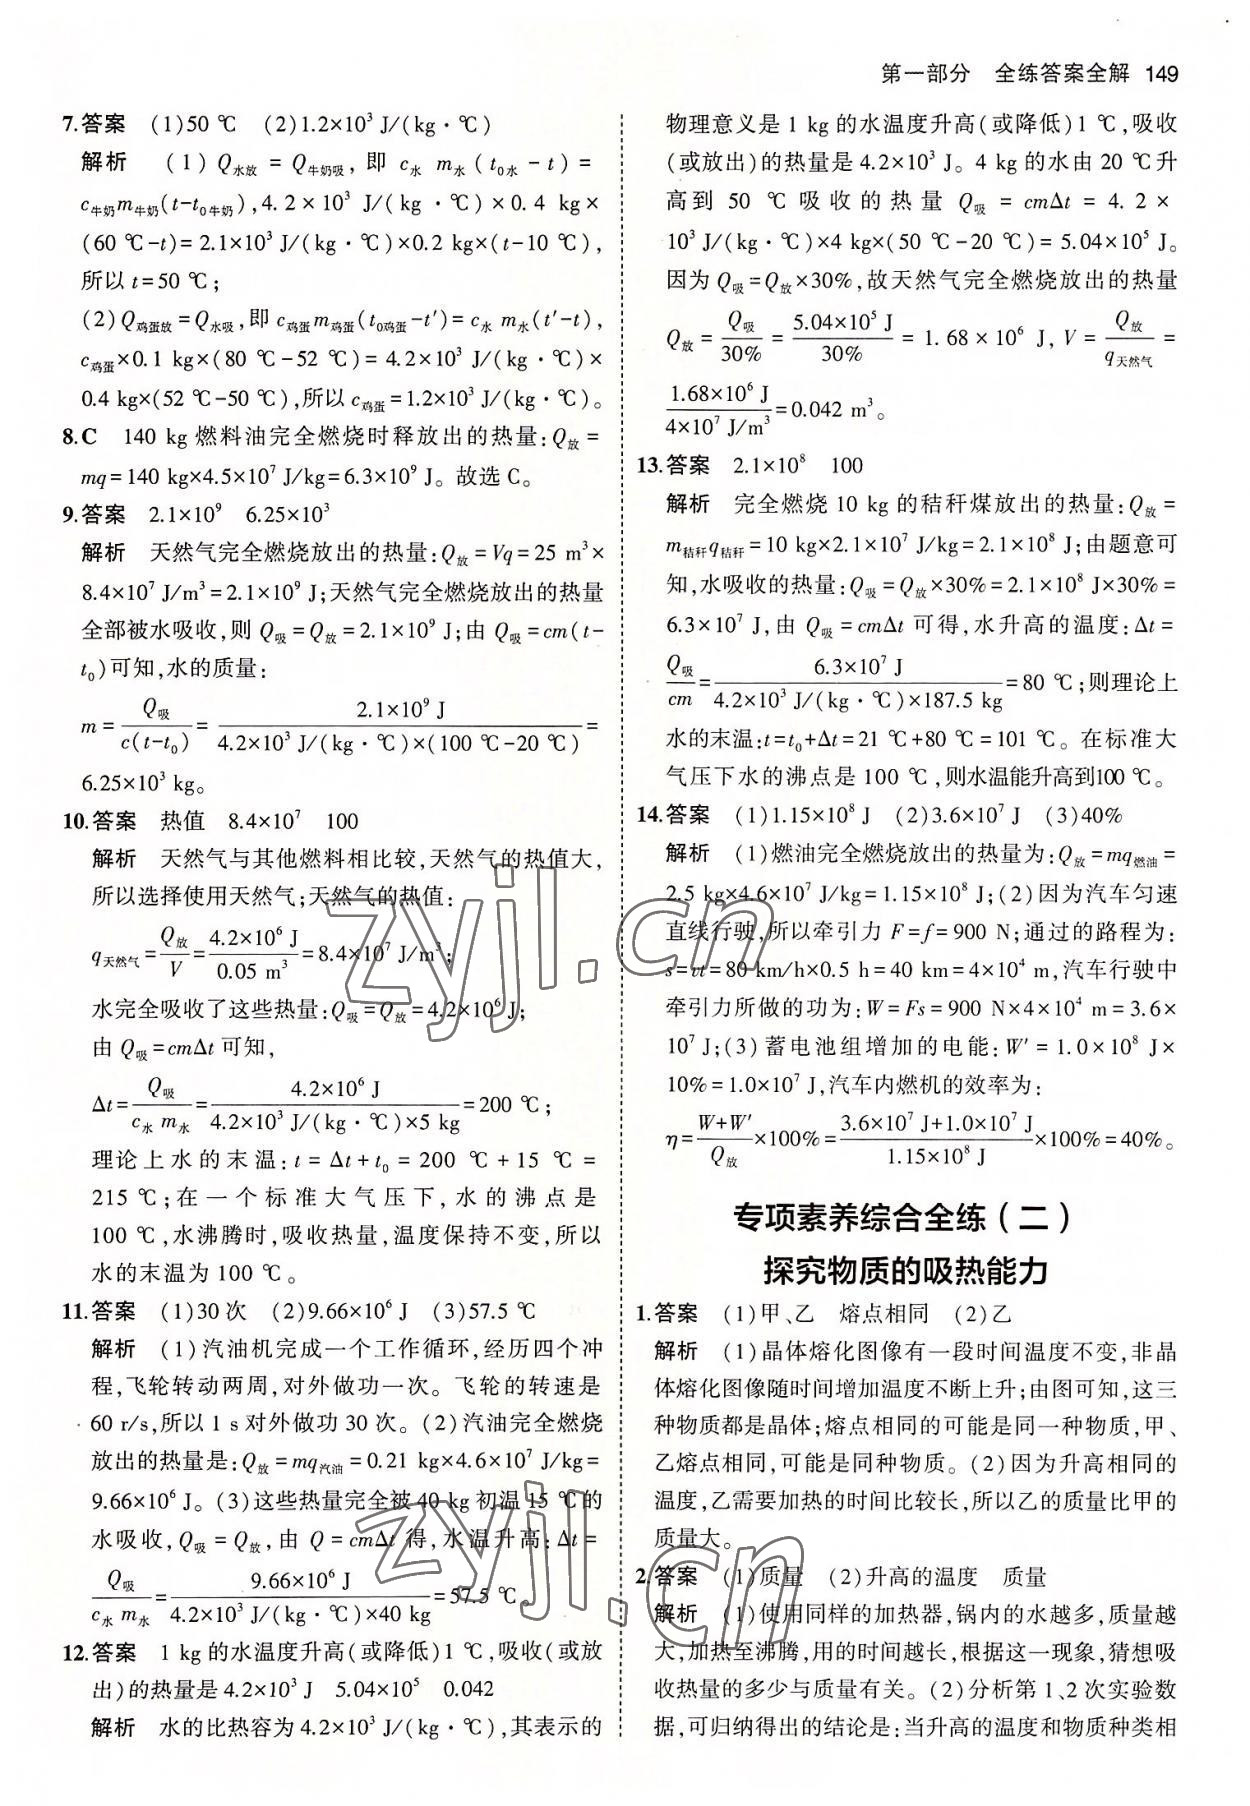 第一部分 全练答案全解 149
7.答案 (1)50 ℃ (2)1.2×10³ J/(kg·℃)
解析 (1) Q水放 = Q牛奶吸, 即 c水 m水 (t0水 - t) =
c牛奶m牛奶(t-t0牛奶),4.2×10³ J/(kg·℃)×0.4 kg×
(60 ℃-t)=2.1×10³ J/(kg·℃)×0.2 kg×(t-10 ℃),
所以 t=50 ℃;
(2)Q鸡蛋放=Q水吸,即 c鸡蛋m鸡蛋(t0鸡蛋-t′)=c水 m水(t′-t),
c鸡蛋×0.1 kg×(80 ℃-52 ℃)=4.2×10³ J/(kg·℃)×
0.4 kg×(52 ℃-50 ℃),所以 c鸡蛋=1.2×10³ J/(kg·℃)。
8.C 140 kg 燃料油完全燃烧时释放出的热量:Q放=
mq=140 kg×4.5×10⁷ J/kg=6.3×10⁹ J。故选 C。
9.答案 2.1×10⁹ 6.25×10³
解析 天然气完全燃烧放出的热量:Q放=Vq=25 m³×
8.4×10⁷ J/m³=2.1×10⁹ J;天然气完全燃烧放出的热量
全部被水吸收,则 Q吸=Q放=2.1×10⁹ J;由 Q吸=cm(t-
t0)可知,水的质量:
m=Q吸/c(t-t0)=2.1×10⁹ J/4.2×10³ J/(kg·℃)×(100 ℃-20 ℃)=
6.25×10³ kg。
10.答案 热值 8.4×10⁷ 100
解析 天然气与其他燃料相比较,天然气的热值大,
所以选择使用天然气;天然气的热值:
q天然气=Q放/V=4.2×10⁶ J/0.05 m³=8.4×10⁷ J/m³;
水完全吸收了这些热量:Q吸=Q放=4.2×10⁶ J;
由 Q吸=cmΔt 可知,
Δt=Q吸/c水 m水=4.2×10⁶ J/4.2×10³ J/(kg·℃)×5 kg=200 ℃;
理论上水的末温:t=Δt+t0=200 ℃+15 ℃=
215 ℃;在一个标准大气压下,水的沸点是
100 ℃,水沸腾时,吸收热量,温度保持不变,所以
水的末温为 100 ℃。
11.答案 (1)30 次 (2)9.66×10⁶ J (3)57.5 ℃
解析 (1)汽油机完成一个工作循环,经历四个冲
程,飞轮转动两周,对外做功一次。飞轮的转速是
60 r/s,所以 1 s 对外做功 30 次。(2)汽油完全燃烧
放出的热量是:Q放=mq汽油=0.21 kg×4.6×10⁷ J/kg=
9.66×10⁶ J。(3)这些热量完全被 40 kg 初温 15 ℃的
水吸收,Q吸=Q放,由 Q=cmΔt 得,水温升高:Δt=
Q吸/c水 m水=9.66×10⁶ J/4.2×10³ J/(kg·℃)×40 kg=57.5 ℃。
12.答案 1 kg 的水温度升高(或降低)1 ℃,吸收(或放
出)的热量是 4.2×10³ J 5.04×10⁵ 0.042
解析 水的比热容为 4.2×10³ J/(kg·℃),其表示的
物理意义是 1 kg 的水温度升高(或降低)1 ℃,吸收
(或放出)的热量是 4.2×10³ J。4 kg 的水由 20 ℃升
高到 50 ℃吸收的热量 Q吸=cmΔt=4.2×
10³ J/(kg·℃)×4 kg×(50 ℃-20 ℃)=5.04×10⁵ J。
因为 Q吸=Q放×30%,故天然气完全燃烧放出的热量
Q放=Q吸/30%=5.04×10⁵ J/30%=1.68×10⁶ J,V=Q放/q天然气=
1.68×10⁶ J/4×10⁷ J/m³=0.042 m³。
13.答案 2.1×10⁸ 100
解析 完全燃烧 10 kg 的秸秆煤放出的热量:Q放=
m秸秆q秸秆=10 kg×2.1×10⁷ J/kg=2.1×10⁸ J;由题意可
知,水吸收的热量:Q吸=Q放×30%=2.1×10⁸ J×30%=
6.3×10⁷ J,由 Q吸=cmΔt 可得,水升高的温度:Δt=
Q吸/cm=6.3×10⁷ J/4.2×10³ J/(kg·℃)×187.5 kg=80 ℃;则理论上
水的末温:t=t0+Δt=21 ℃+80 ℃=101 ℃。在标准大
气压下水的沸点是 100 ℃,则水温能升高到100 ℃。
14.答案 (1)1.15×10⁸ J (2)3.6×10⁷ J (3)40%
解析 (1)燃油完全燃烧放出的热量为:Q放=mq燃油=
2.5 kg×4.6×10⁷ J/kg=1.15×10⁸ J;(2)因为汽车匀速
直线行驶,所以牵引力 F=f=900 N;通过的路程为:
s=vt=80 km/h×0.5 h=40 km=4×10⁴ m,汽车行驶中
牵引力所做的功为:W=Fs=900 N×4×10⁴ m=3.6×
10⁷ J;(3)蓄电池组增加的电能:W′=1.0×10⁸ J×
10%=1.0×10⁷ J,汽车内燃机的效率为:
η=W+W′/Q放×100%=3.6×10⁷ J+1.0×10⁷ J/1.15×10⁸ J×100%=40%。
专项素养综合全练(二)
探究物质的吸热能力
1.答案 (1)甲、乙 熔点相同 (2)乙
解析 (1)晶体熔化图像有一段时间温度不变,非晶
体熔化图像随时间增加温度不断上升;由图可知,这三
种物质都是晶体;熔点相同的可能是同一种物质,甲、
乙熔点相同,可能是同种物质。(2)因为升高相同的
温度,乙需要加热的时间比较长,所以乙的质量比甲的
质量大。
2.答案 (1)质量 (2)升高的温度 质量
解析 (1)使用同样的加热器,锅内的水越多,质量越
大,加热至沸腾,用的时间越长,根据这一现象,猜想吸
收热量的多少与质量有关。(2)分析第 1、2 次实验数
据,可归纳得出的结论是:当升高的温度和物质种类相
zyjl.cn
zyjl.cn